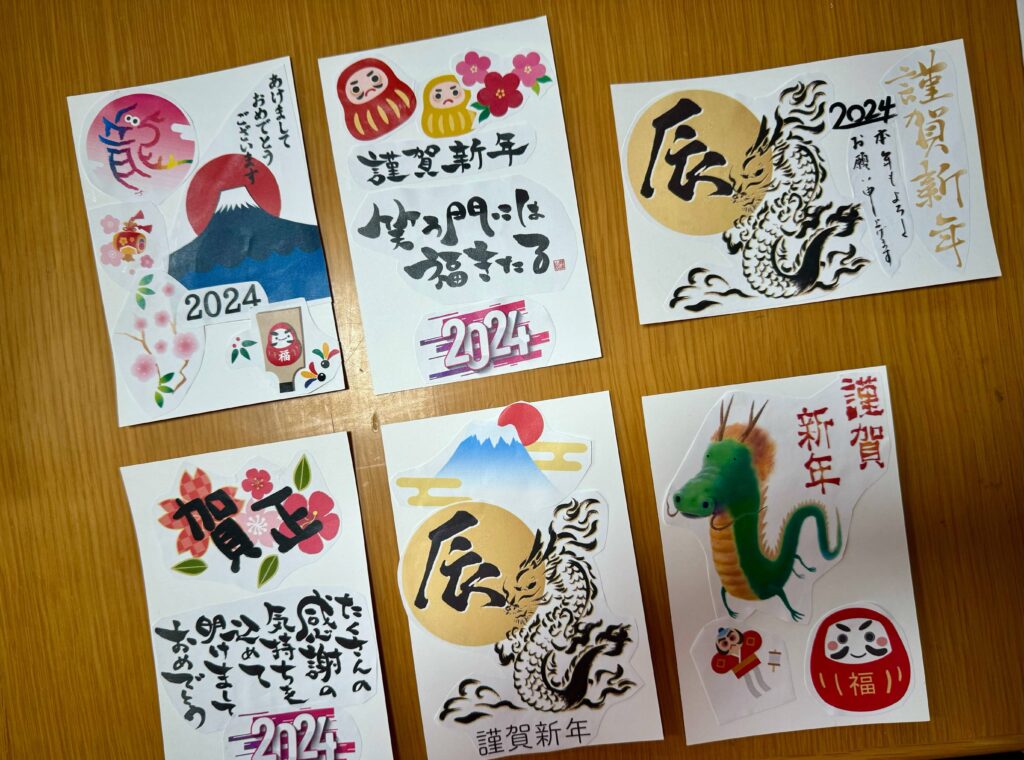 龍
あけまして
おめでとう
ございます
2024
福
謹賀新年
笑う門には
福きたる
2024
謹賀新年
2024
本年もよろしく
お願い申し上げます
辰
賀正
たくさんの
感謝の
気持ちを
込めて
明けまして
おめでとう
2024
辰
謹賀新年
謹賀
新年
福